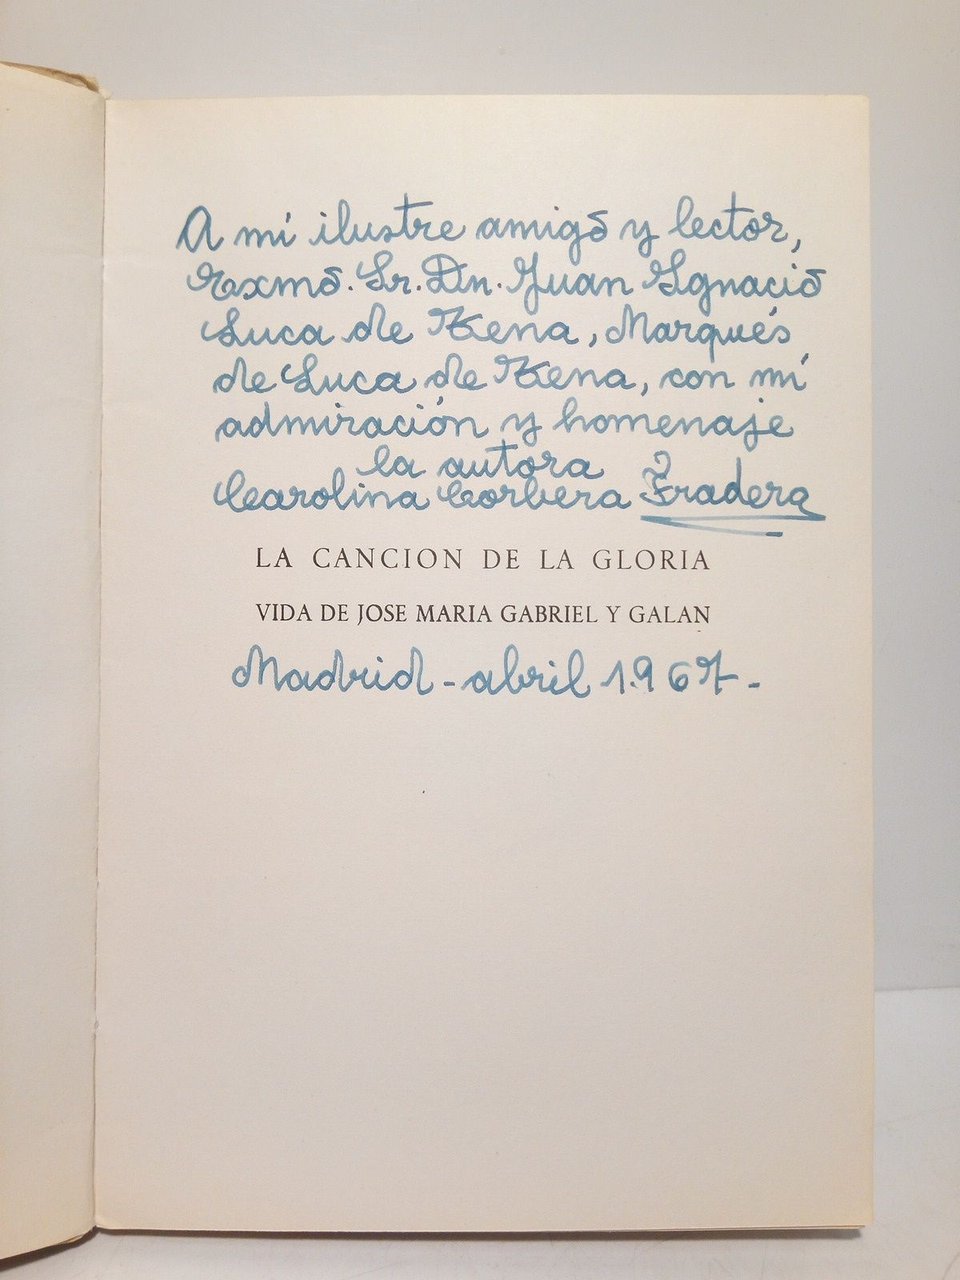 A mi ilustre amigo y lector,
Exxmo. Sr. Dn. Juan Ignacio
Luca de Tena, Marqués
de Luca de Tena, con mi
admiración y homenaje
la autora
Carolina Corbera Fradera
LA CANCION DE LA GLORIA
VIDA DE JOSE MARIA GABRIEL Y GALAN
Madrid - abril 1.967 -